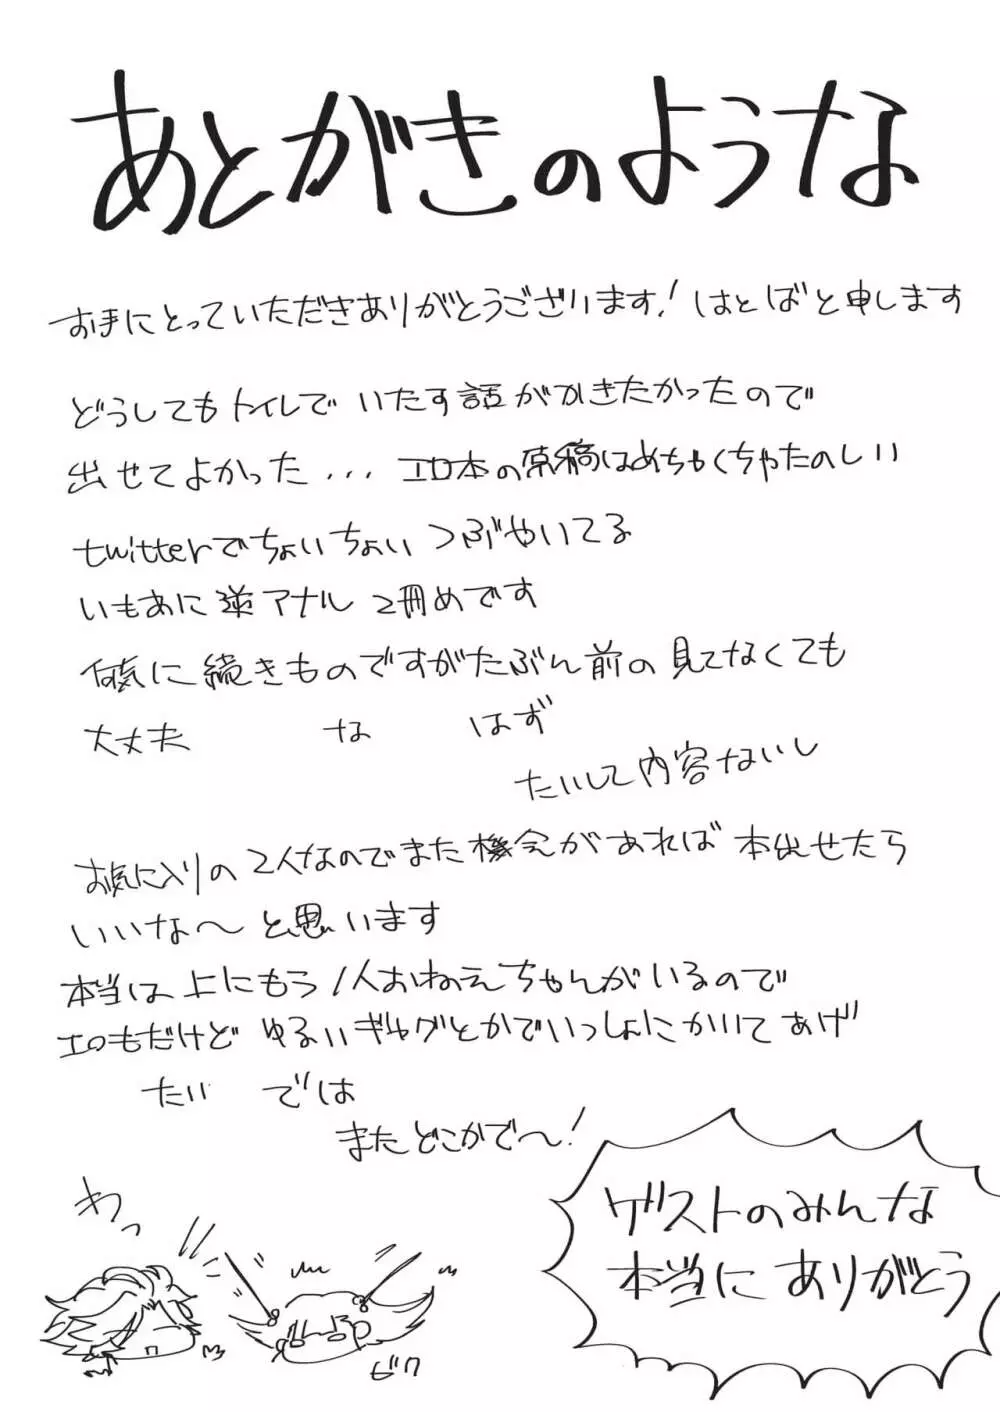 あとがきのような
お手にとっていただきありがとうございます! はとばと申します
どうしてもトイレでいたす話がかきたかったので
出せてよかった... エロ本の原稿はめちゃくちゃたのしい
twitterでちょいちょいつぶやいてる
いもあに逆アナル2冊めです
何気に続きものですがたぶん前の見てなくても
大丈夫 な はず
たいして内容ないし
お気に入りの2人なのでまた機会があれば本出せたら
いいな〜と思います
本当は上にもう1人おねえちゃんがいるので
エロもだけどゆるいギャグとかでいっしょにかいてあげ
たい では
またどこかで〜!
わっ
ビク
ゲストのみんな
本当にありがとう